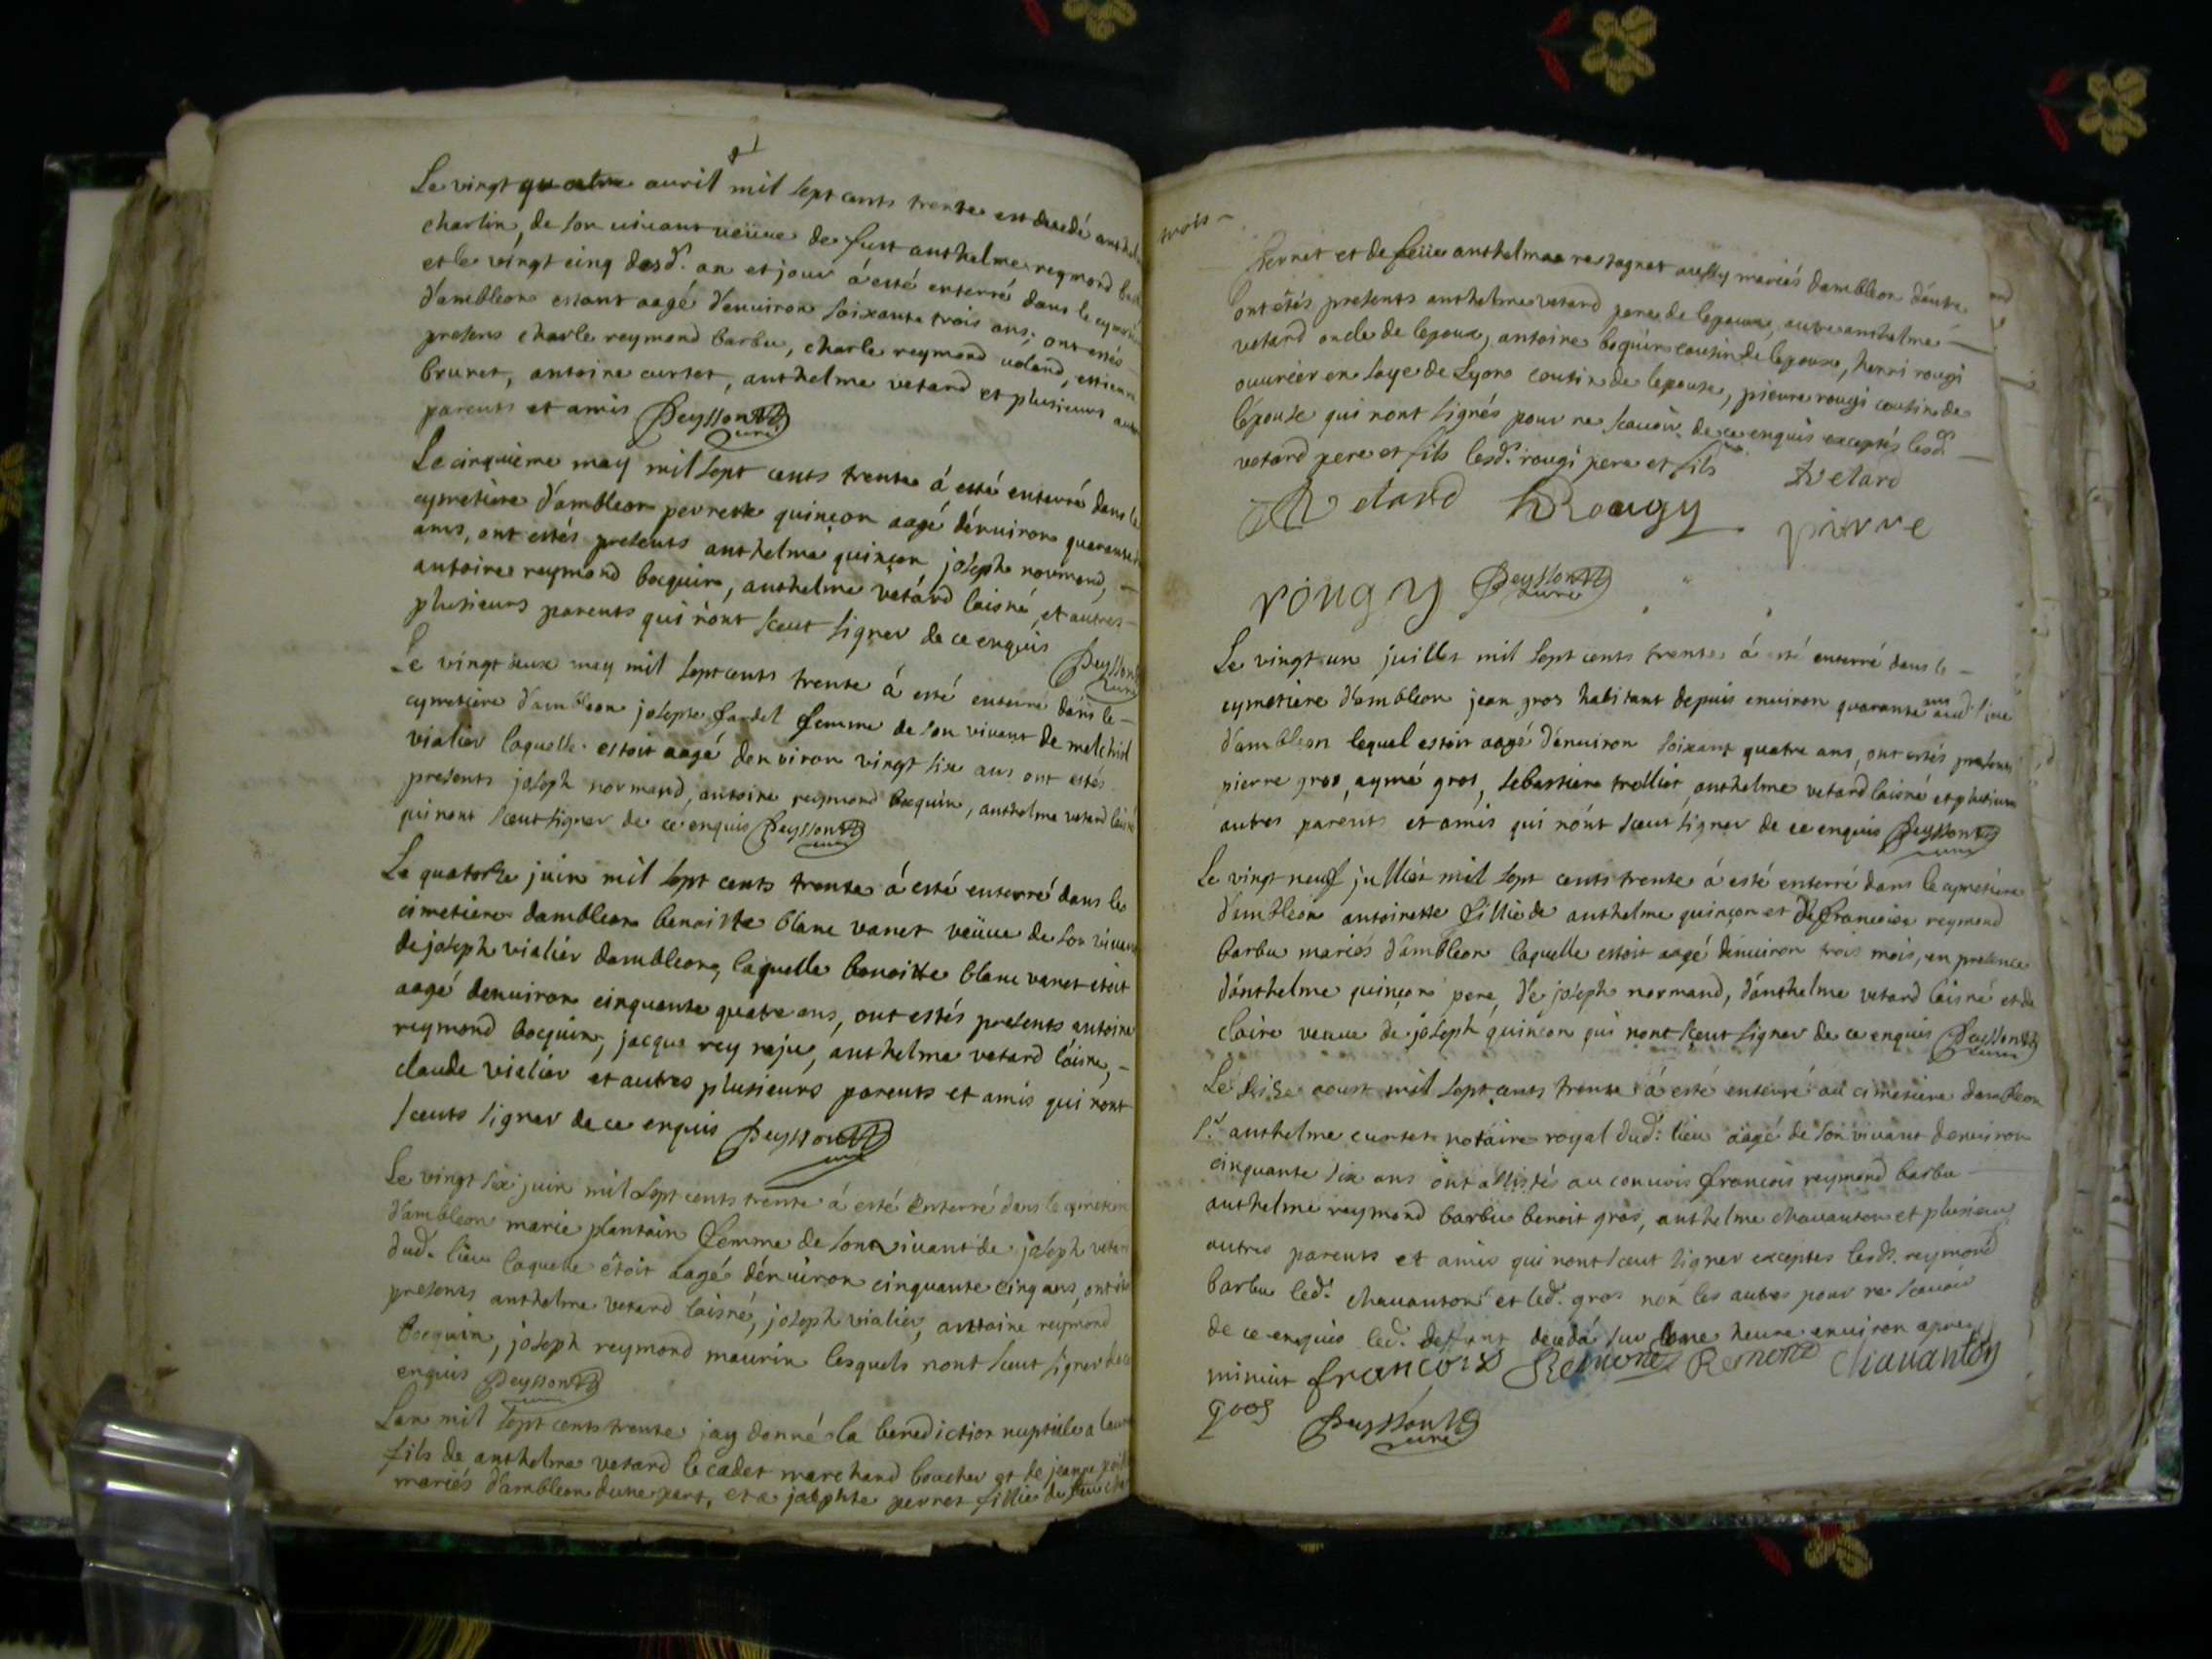 Le vingt quatre auril mil sept cents trente est decedé
charlin, de son uiuant veüue de fust anthelme reymond
et le vingt cinq desd. an et jour á esté enterré dans le
d'ambleon estant aagé d'enuiron soixante trois ans, ont estés
presens charle reymond barbu, charle reymond uoland,
brunet, antoine curtet, anthelme vetard et plusieurs
parents et amis Peysson
curé
Le cinquieme may mil sept cents trente á esté enterré dans le
cymetiere d'ambleon perrette quinçon aagé d'enuiron quarante
ans, ont estés presents anthelme quinçon joseph normand,
antoine reymond bocquin, anthelme vetard laisné, et autres
plusieurs parents qui n'ont sceut signer de ce enquis
Peysson
curé
Le vingt deux may mil sept cents trente á esté enterré dans le
cymetiere d'ambleon josephe fardel femme de son viuant de melchiol
vialier laquelle estoit aagé denviron vingt six ans ont estés
presents joseph normand, antoine reymond bocquin, anthelme vetard laisné
qui nont sceut signer de ce enquis Peysson
curé
Le quatorze juin mil sept cents trente á esté enterré dans le
cimetiere dambleon benoitte blanc vanet veüue de son viuant
de joseph vialier dambleon, laquelle benoitte blanc vanet etoit
aagé denuiron cinquante quatre ans, ont estés presents antoine
reymond bocquin, jacque rey raju, anthelme vetard laisne,
claude vialier et autres plusieurs parents et amis qui nont
sceuts signer de ce enquis Peysson
curé
Le vingt six juin mil sept cents trente á esté enterré dans le cimetiere
d'ambleon marie plantain femme de son viuant de joseph vetard
dud. lieu laquelle étoit aagé dénuiron cinquante cinq ans, ont
presents anthelme vetard laisné, joseph vialier, antoine reymond
bocquin, joseph reymond maurin lesquels nont sceut signer de ce
enquis Peysson
curé
Lan mil sept cents trente jay donné la benediction nuptiale a
fils de anthelme vetard le cadet marchand boucher et de jeanne
mariés d'ambleon dune part, et a josephte perret fillie de feu
trois
perret et de feüe anthelmaz restagnet aussy mariés dambleon dáutre
ont étés presents anthelme vetard pere de lepoux, autre anthelme
vetard oncle de lepoux, antoine boquin cousin de lepouse, henri rougi
ouurier en soye de Lyon cousin de lepouse, pierre rougi cousin de
lépouse qui nont signés pour ne scauoir de ce enquis exceptés lesd.
vetard pere et fils lesd. rougi pere et fils
vetard
vetard hRougy pierre
rougy Peysson
curé
Le vingt un juillet mil sept cents trente á été enterré dans le
cymetiere d'ambleon jean gros habitant depuis enuiron quarante ans aud. lieu
d'ambleon lequel estoit aagé d'enuiron soixant quatre ans, ont estés presents
pierre gros, aymé gros, sebastien trolliet, anthelme vetard laisné et plusieurs
autres parents et amis qui nónt sceut signer de ce enquis Peysson
curé
Le vingt neuf julliét mil sept cents trente á esté enterré dans le cymetiere
d'embleon antoinette fillie de anthelme quinçon et de francoise reymond
barbu mariés d'ambleon laquelle estoit aagé denuiron trois mois, en presence
dánthelme quinçon pere, de joseph normand, dánthelme vetard laisné et de
claire veuue de joseph quincon qui nont sceut signer de ce enquis Peysson
curé
Le seize aoust mil sept cents trente á esté enterré au cimetiere dambleon
sr. anthelme curtet notaire royal dud: lieu aagé de son viuant denuiron
cinquante six ans ont assisté au conuois francois reymond barbu
anthelme reymond barbu benoit gros, anthelme chauanton et plusieurs
autres parents et amis qui nont sceut signer exceptes lesds. reymond
barbu led. chauanton et led. gros non les autres pour ne scauoir
de ce enquis led. deffunt decedá sur lune heure enuiron apres
minuit francois Remond Remond Chauanton
gros Peysson
curé